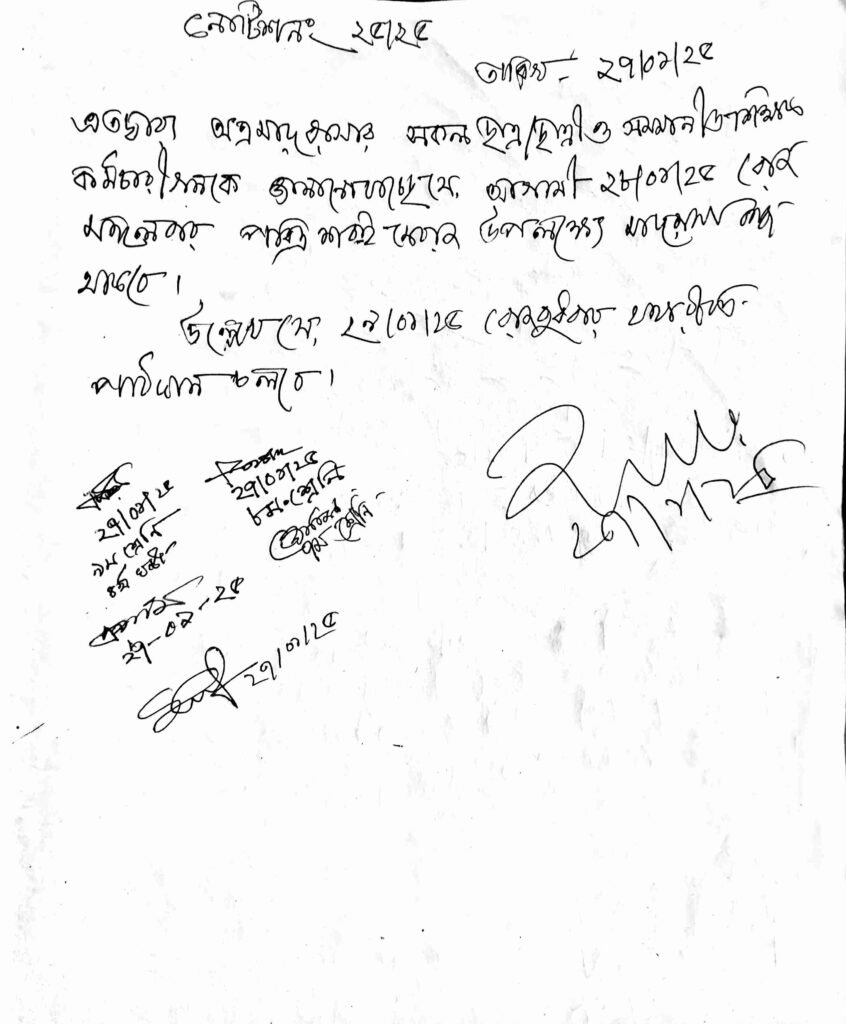 নোটিশ নং ২৫/২৫
তারিখ :- ২৭/০১/২৫
এতদ্বারা অত্র মাদ্রাসার সকল ছাত্র/ছাত্রী ও সম্মানীত শিক্ষক
কর্মচারীগনকে জানানো যাচ্ছে যে, আগামী ২৮/০১/২৫ রোজ
মঙ্গলবার পবিত্র শবই মেরাজ উপলক্ষ্যে মাদরাসা বন্ধ
থাকবে।
উল্লেখ্য যে, ২৯/০১/২৫ রোজ বুধবার যথারীতি
পাঠদান চলবে।
২৭/০১/২৫
২৭/০১/২৫
৮ম শ্রেনি
২৭/০১/২৫
৯ম শ্রেনি
৭ম শ্রেনি
২৭-০১-২৫
২৭/০১/২৫